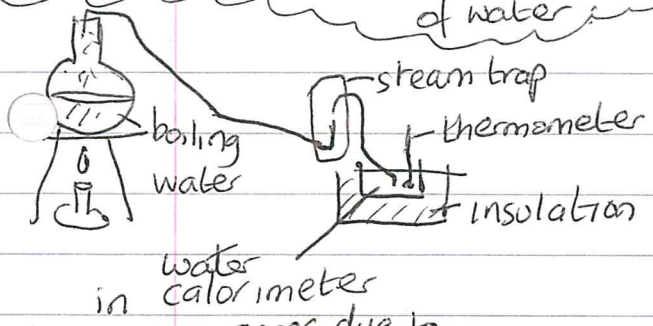 of water
steam trap
thermometer
boiling
water
insulation
water
in calorimeter
due to